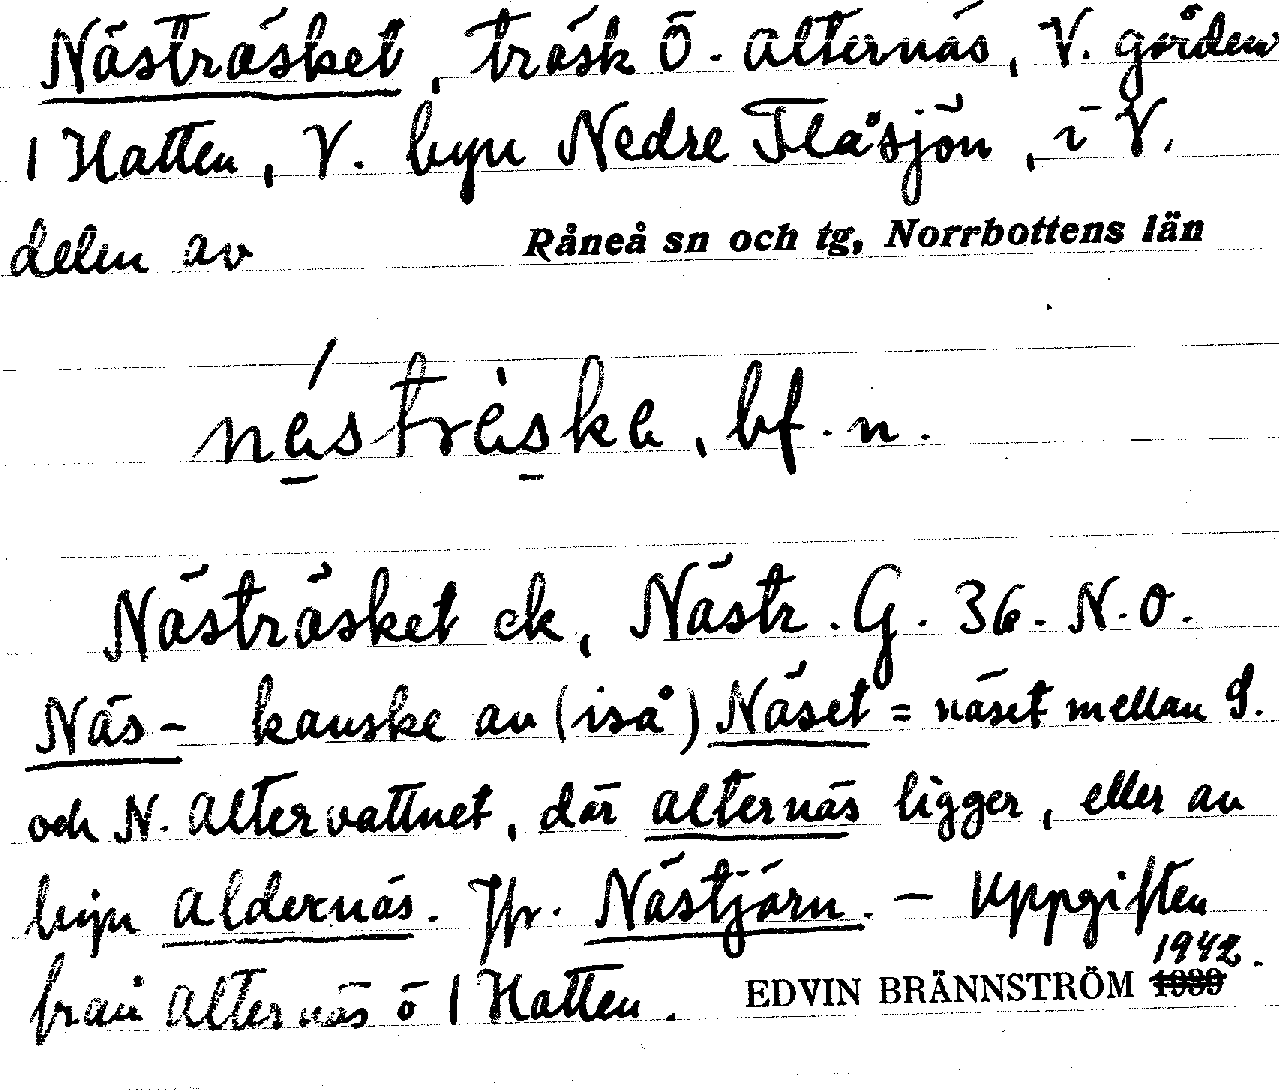 Nästräsket, träsk Ö. Alternäs, V. gården
1 Hatten, V. byn Nedre Flåsjön, i V.
delen av Råneå sn och tg, Norrbottens län
nástrèska, bf. n.
Nästräsket ek, Nästr. G. 36. N.O.
Näs- kanske av (iså) Näset = näset mellan S.
och N. Altervattnet, där Alternäs ligger, eller av
byn Aldernäs. Jfr. Nästjärn. – Uppgiften
från Alternäs ö 1 Hatten. EDVIN BRÄNNSTRÖM 1942.